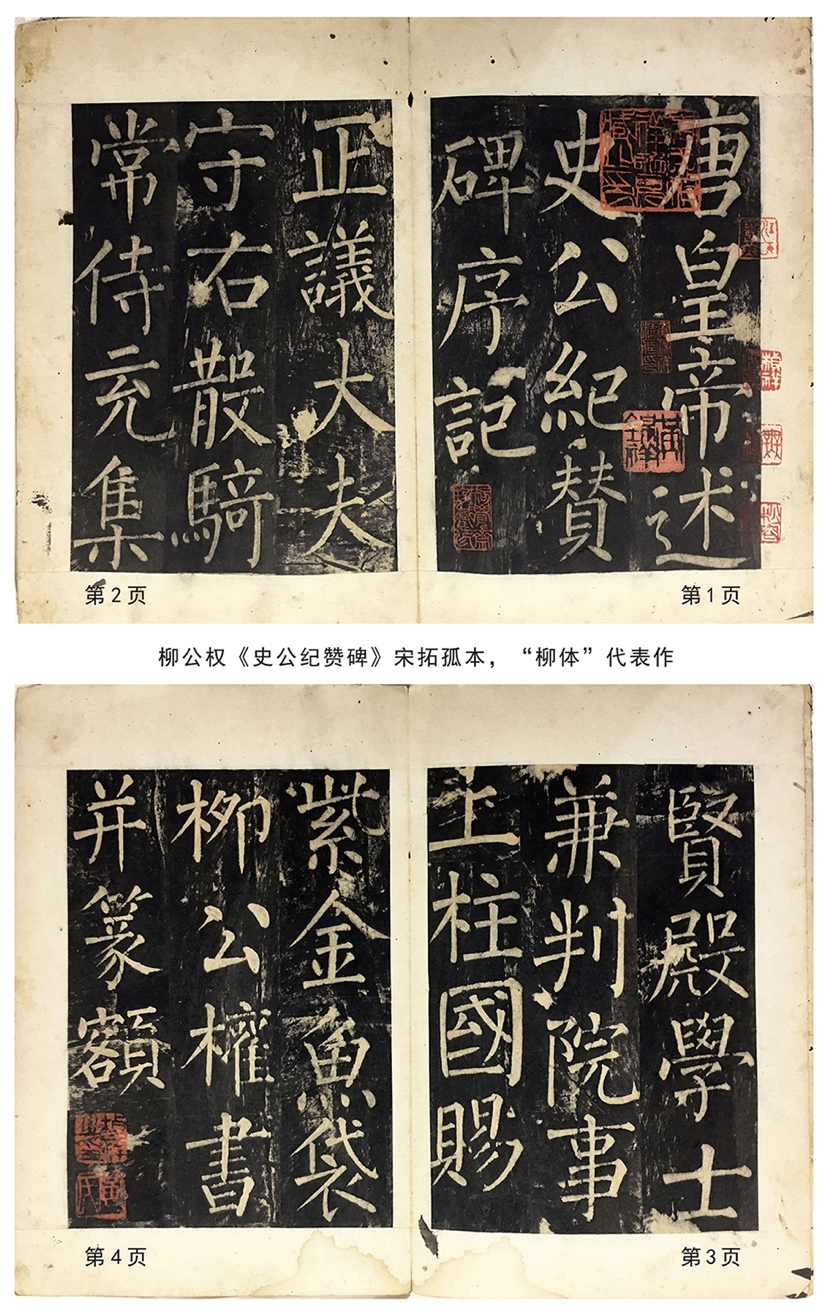 唐皇帝述
史公紀賛
碑序記
第1页
正議大夫
守右散騎
常侍充集
第2页
柳公权《史公纪赞碑》宋拓孤本，“柳体”代表作
賢殿學士
兼判院事
上柱國賜
第3页
紫金魚袋
柳公權書
并篆額
第4页